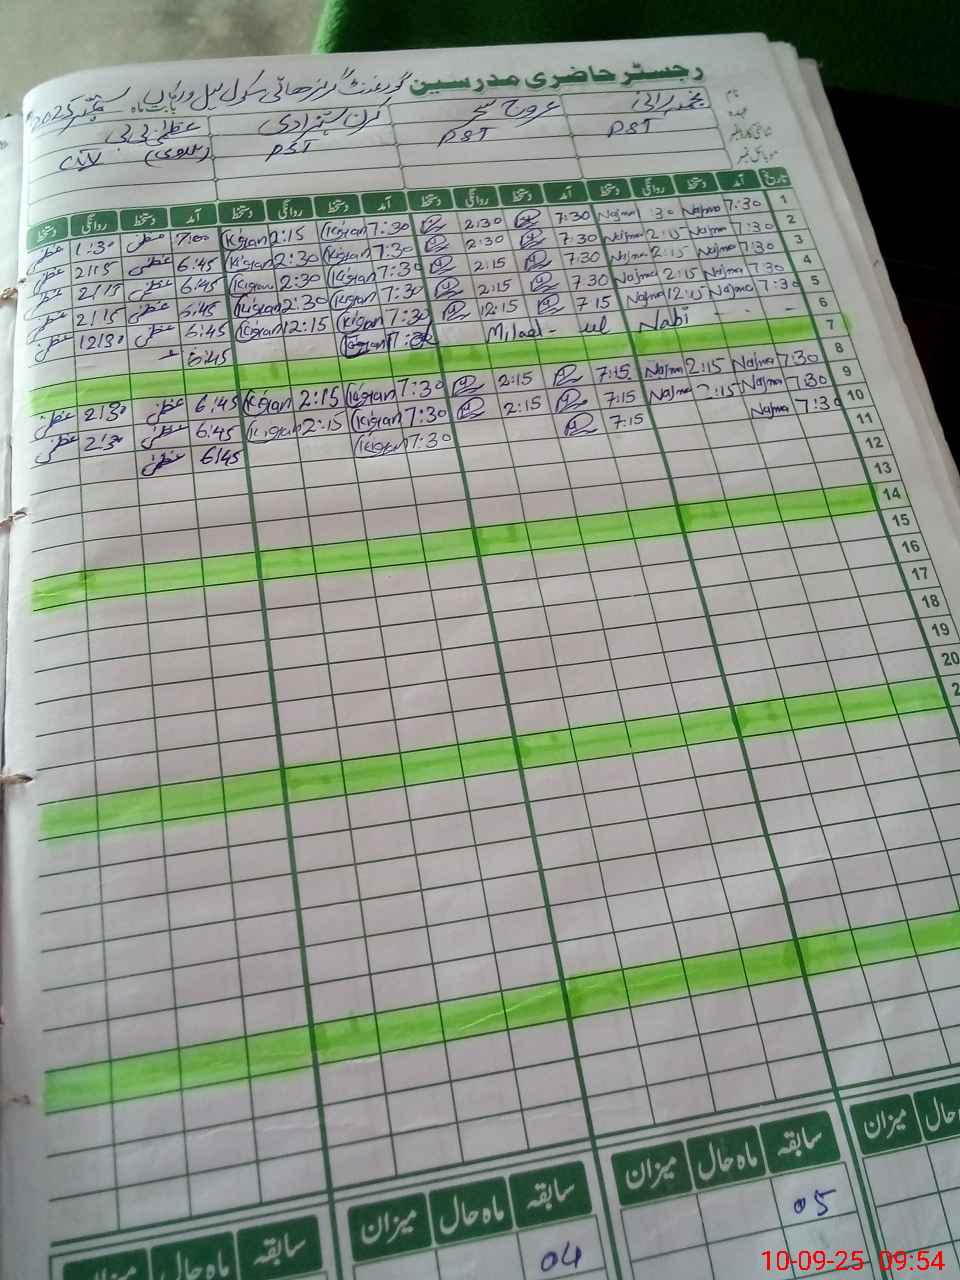 رجسٹر حاضری مدرسین گورنمنٹ گرلز ہائی سکول بابت ماہ ستمبر 2025
نام
عہدہ
شناختی کارڈ نمبر
موبائل نمبر
نجمہ عروج سحر کرن شہزادی عظمیٰ بی بی
PST PST PST
تاریخ آمد دستخط روانگی دستخط آمد دستخط روانگی دستخط آمد دستخط روانگی دستخط آمد دستخط روانگی دستخط
1 7:30 Najma :30 Najma 7:30 2:30 7:30 Kiran 2:15 Kiran 7:00 عظمیٰ 1:30 عظمیٰ
2 7:30 Najma 2:15 Najma 7:30 2:30 7:30 Kiran 2:30 Kiran 6:45 عظمیٰ 2:15 عظمیٰ
3 7:30 Najma 2:15 Najma 7:30 2:15 7:30 Kiran 2:30 Kiran 6:45 عظمیٰ 2:15 عظمیٰ
4 7:30 Najma 2:15 Najma 7:30 2:15 7:30 Kiran 2:30 Kiran 6:45 عظمیٰ 2:15 عظمیٰ
5 7:30 Najma 12:15 Najma 7:15 12:15 7:30 Kiran 12:15 Kiran 6:45 عظمیٰ 12:30 عظمیٰ
6 Milad - ul Nabi - - - Kiran 6:45
7
8 7:30 Najma 2:15 Najma 7:15 2:15 7:30 Kiran 2:15 Kiran 6:45 عظمیٰ 2:30 عظمیٰ
9 7:30 Najma 2:15 Najma 7:15 2:15 7:30 Kiran 2:15 Kiran 6:45 عظمیٰ 2:30 عظمیٰ
10 7:30 Najma 7:15 7:30 Kiran 6:45 عظمیٰ
11
12
13
14
15
16
17
18
19
20
2
سابقہ ماہ حال میزان سابقہ ماہ حال میزان سابقہ ماہ حال میزان
05 04
10-09-25 09:54